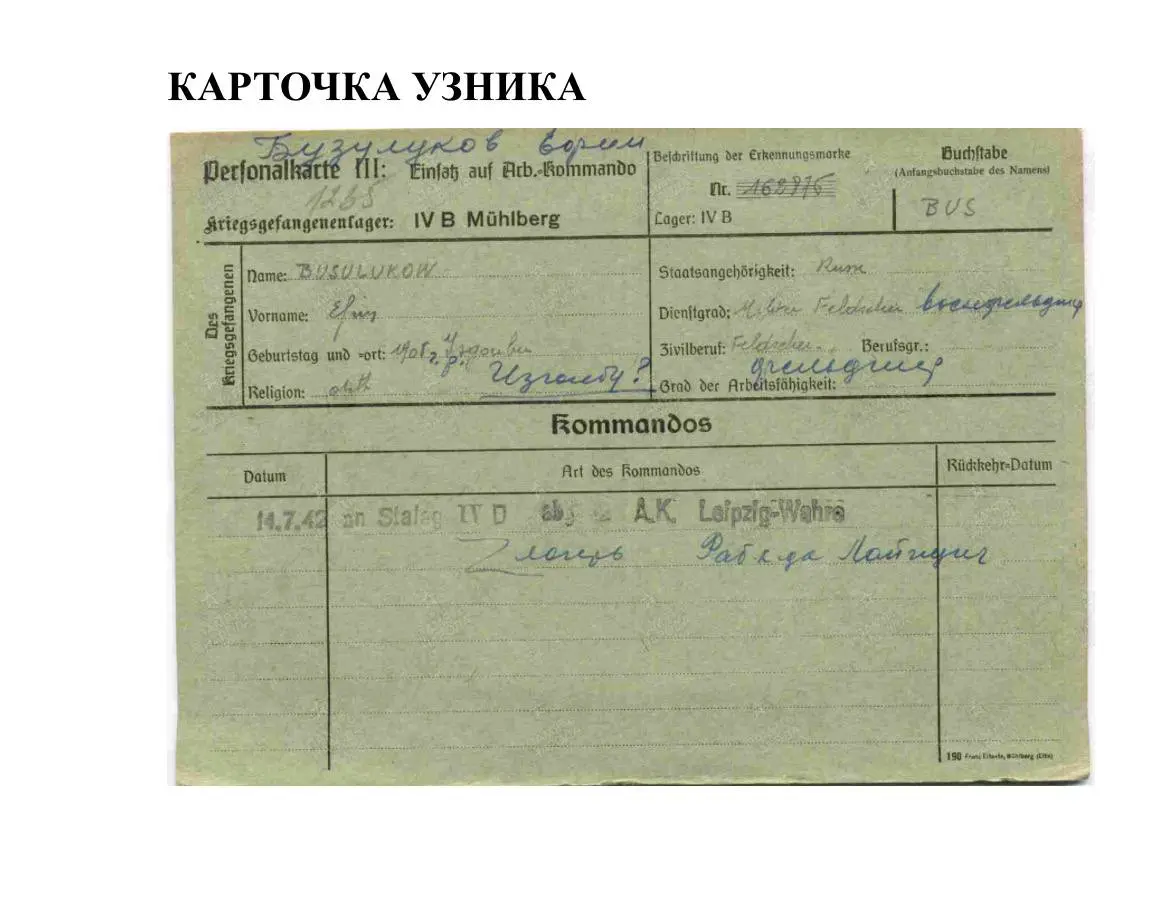 КАРТОЧКА УЗНИКА
Бузулуков Ефим
Personalkarte III: Einsatz auf Arb.-Kommando
1285
Kriegsgefangenenlager: IV B Mühlberg
Beschriftung der Erkennungsmarke
Nr. 162876
Lager: IV B
Buchstabe
(Anfangsbuchstabe des Namens)
BUS
Des Kriegsgefangenen
Name: BUSULUKOW
Vorname: Efim
Geburtstag und =ort: 1905 г.
Религion: orth
Staatsangehörigkeit: Russe
Dienstgrad: Feldscher военфельдшер
Zivilberuf: Feldscher Berufsgr.:
фельдшер
Grad der Arbeitsfähigkeit:
Kommandos
Datum
Art des Kommandos
Rückkehr=Datum
14.7.42 an Stalag IV D A.K. Leipzig-Wahre
лагерь Раб к-да Лайпциг
190 Mühlberg (Elbe)